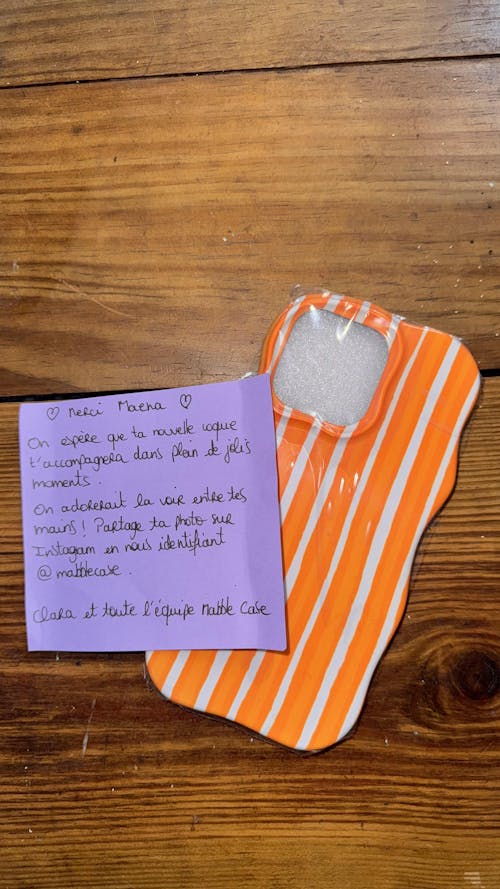 ♡ Merci Maena ♡
On espère que ta nouvelle coque
t'accompagnera dans plein de jolis
moments.
On adorerait la voir entre tes
mains ! Partage ta photo sur
Instagam en nous identifiant
@mabblecase.
Clara et toute l'équipe Mabble Case